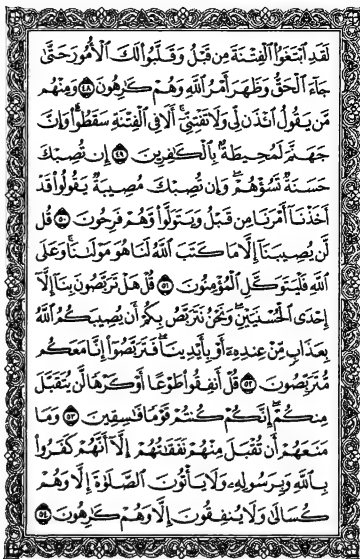 لَقَدِ ٱبْتَغَوُا۟ ٱلْفِتْنَةَ مِن قَبْلُ وَقَلَّبُوا۟ لَكَ ٱلْأُمُورَ حَتَّىٰ
جَآءَ ٱلْحَقُّ وَظَهَرَ أَمْرُ ٱللَّهِ وَهُمْ كَٰرِهُونَ ٤٨ وَمِنْهُم
مَّن يَقُولُ ٱئْذَن لِّى وَلَا تَفْتِنِّىٓ ۚ أَلَا فِى ٱلْفِتْنَةِ سَقَطُوا۟ ۗ وَإِنَّ
جَهَنَّمَ لَمُحِيطَةٌۢ بِٱلْكَٰفِرِينَ ٤٩ إِن تُصِبْكَ
حَسَنَةٌ تَسُؤْهُمْ ۖ وَإِن تُصِبْكَ مُصِيبَةٌ يَقُولُوا۟ قَدْ
أَخَذْنَآ أَمْرَنَا مِن قَبْلُ وَيَتَوَلَّوا۟ وَّهُمْ فَرِحُونَ ٥٠ قُل
لَّن يُصِيبَنَآ إِلَّا مَا كَتَبَ ٱللَّهُ لَنَا هُوَ مَوْلَىٰنَا ۚ وَعَلَى
ٱللَّهِ فَلْيَتَوَكَّلِ ٱلْمُؤْمِنُونَ ٥١ قُلْ هَلْ تَرَبَّصُونَ بِنَآ إِلَّآ
إِحْدَى ٱلْحُسْنَيَيْنِ ۖ وَنَحْنُ نَتَرَبَّصُ بِكُمْ أَن يُصِيبَكُمُ ٱللَّهُ
بِعَذَابٍ مِّنْ عِندِهِۦٓ أَوْ بِأَيْدِينَا ۖ فَتَرَبَّصُوٓا۟ إِنَّا مَعَكُم
مُّتَرَبِّصُونَ ٥٢ قُلْ أَنفِقُوا۟ طَوْعًا أَوْ كَرْهًا لَّن يُتَقَبَّلَ
مِنكُمْ ۖ إِنَّكُمْ كُنتُمْ قَوْمًا فَٰسِقِينَ ٥٣ وَمَا
مَنَعَهُمْ أَن تُقْبَلَ مِنْهُمْ نَفَقَٰتُهُمْ إِلَّآ أَنَّهُمْ كَفَرُوا۟
بِٱللَّهِ وَبِرَسُولِهِۦ وَلَا يَأْتُونَ ٱلصَّلَوٰةَ إِلَّا وَهُمْ
كُسَالَىٰ وَلَا يُنفِقُونَ إِلَّا وَهُمْ كَٰرِهُونَ ٥٤